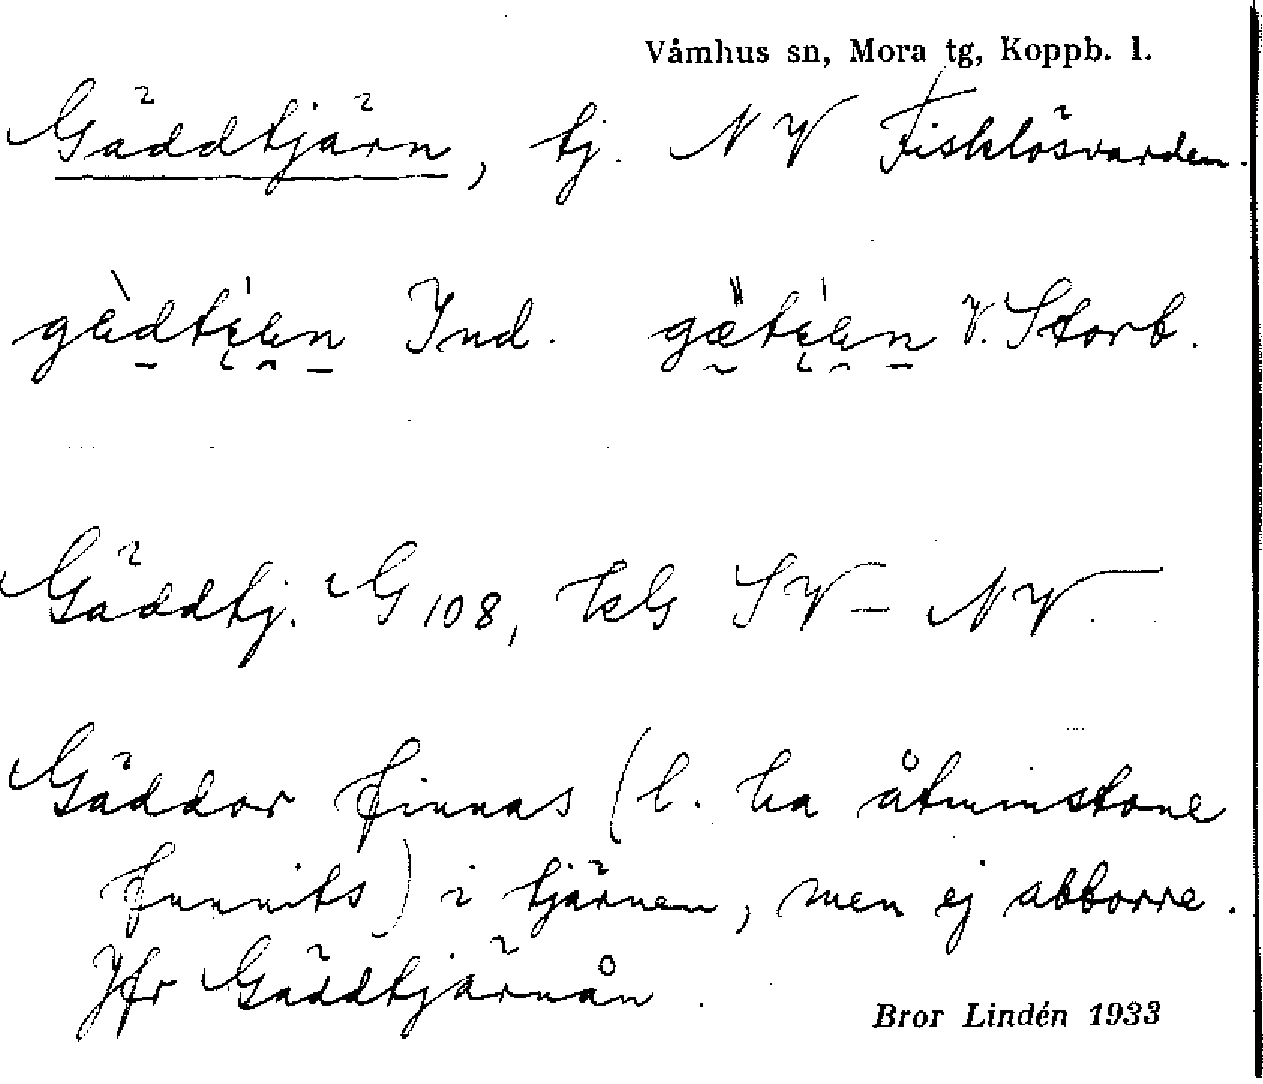 Våmhus sn, Mora tg, Koppb. l.
Gäddtjärn, tj. NV Fisklösvarden.
Ind. V. Storb.
Gäddtj. G 108, SV – NV.
Gäddor finnas (l. ha åtminstone
funnits) i tjärnen, men ej abborre.
Jfr Gäddtjärnån.
Bror Lindén 1933